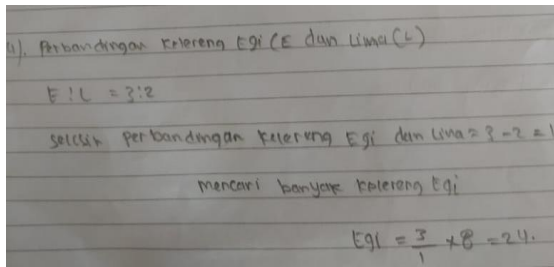 4). Perbandingan kelereng Egi (E dan Lima (L)
E : L = 3:2
selisih perbandingan kelereng Egi dan Lima = 3 - 2 = 1
mencari banyak kelereng Egi
Egi = 3/1 x 8 = 24.